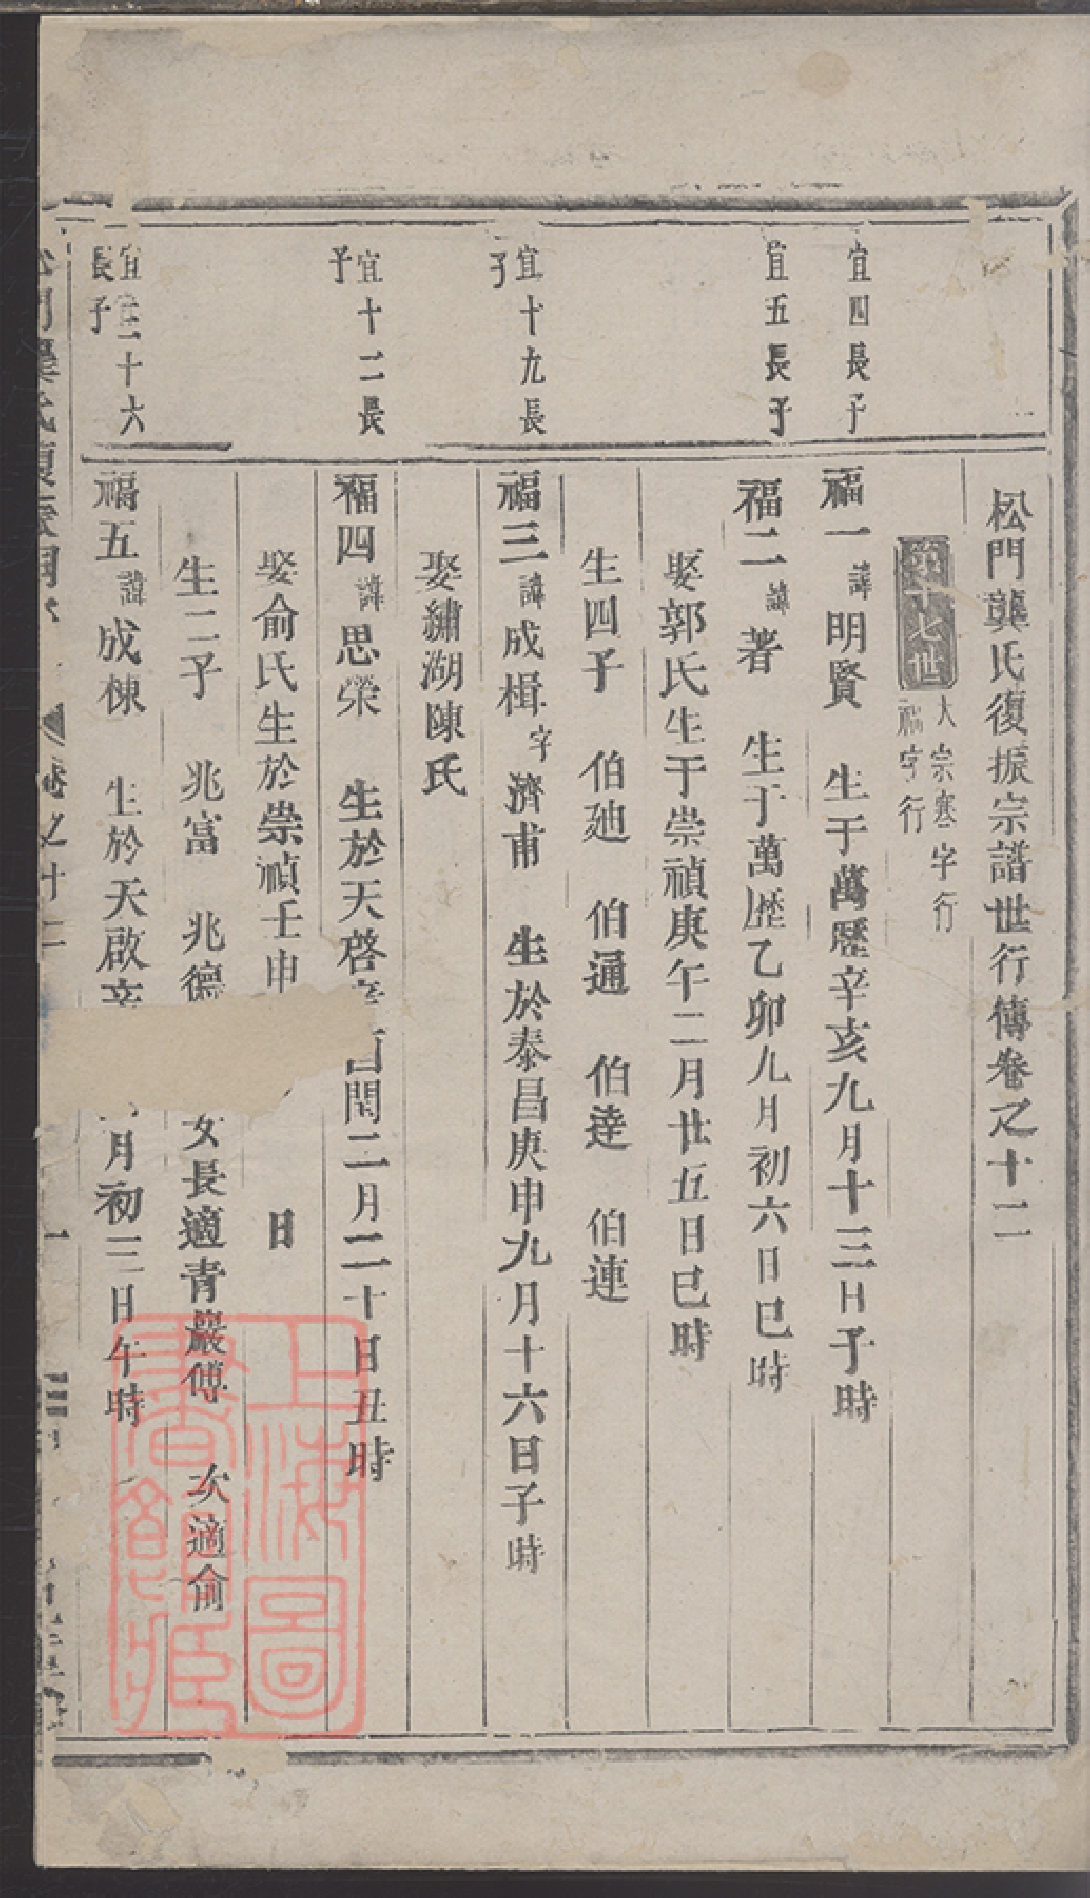 松門龔氏復振宗譜世行傳卷之十二
第十七世
大宗寒字行
福字行
宜四長子
福一 諱 明賢 生于萬歷辛亥九月十三日子時
宜五長子
福二 諱 著 生于萬歷乙卯九月初六日巳時
娶郭氏生于崇禎庚午二月廿五日巳時
生四子 伯廸 伯通 伯達 伯連
宜十九長
子
福三 諱 成楫 字 濟甫 生於泰昌庚申九月十六日子時
娶繡湖陳氏
宜十二長
子
福四 諱 思榮 生於天啓辛酉閏二月二十日丑時
娶俞氏生於崇禎壬申 日
生二子 兆富 兆德 女長適青巖傅 次適俞
宜三十六
長子
福五 諱 成棟 生於天啟辛 月初三日午時
卷之十二
一
上海圖
書館藏